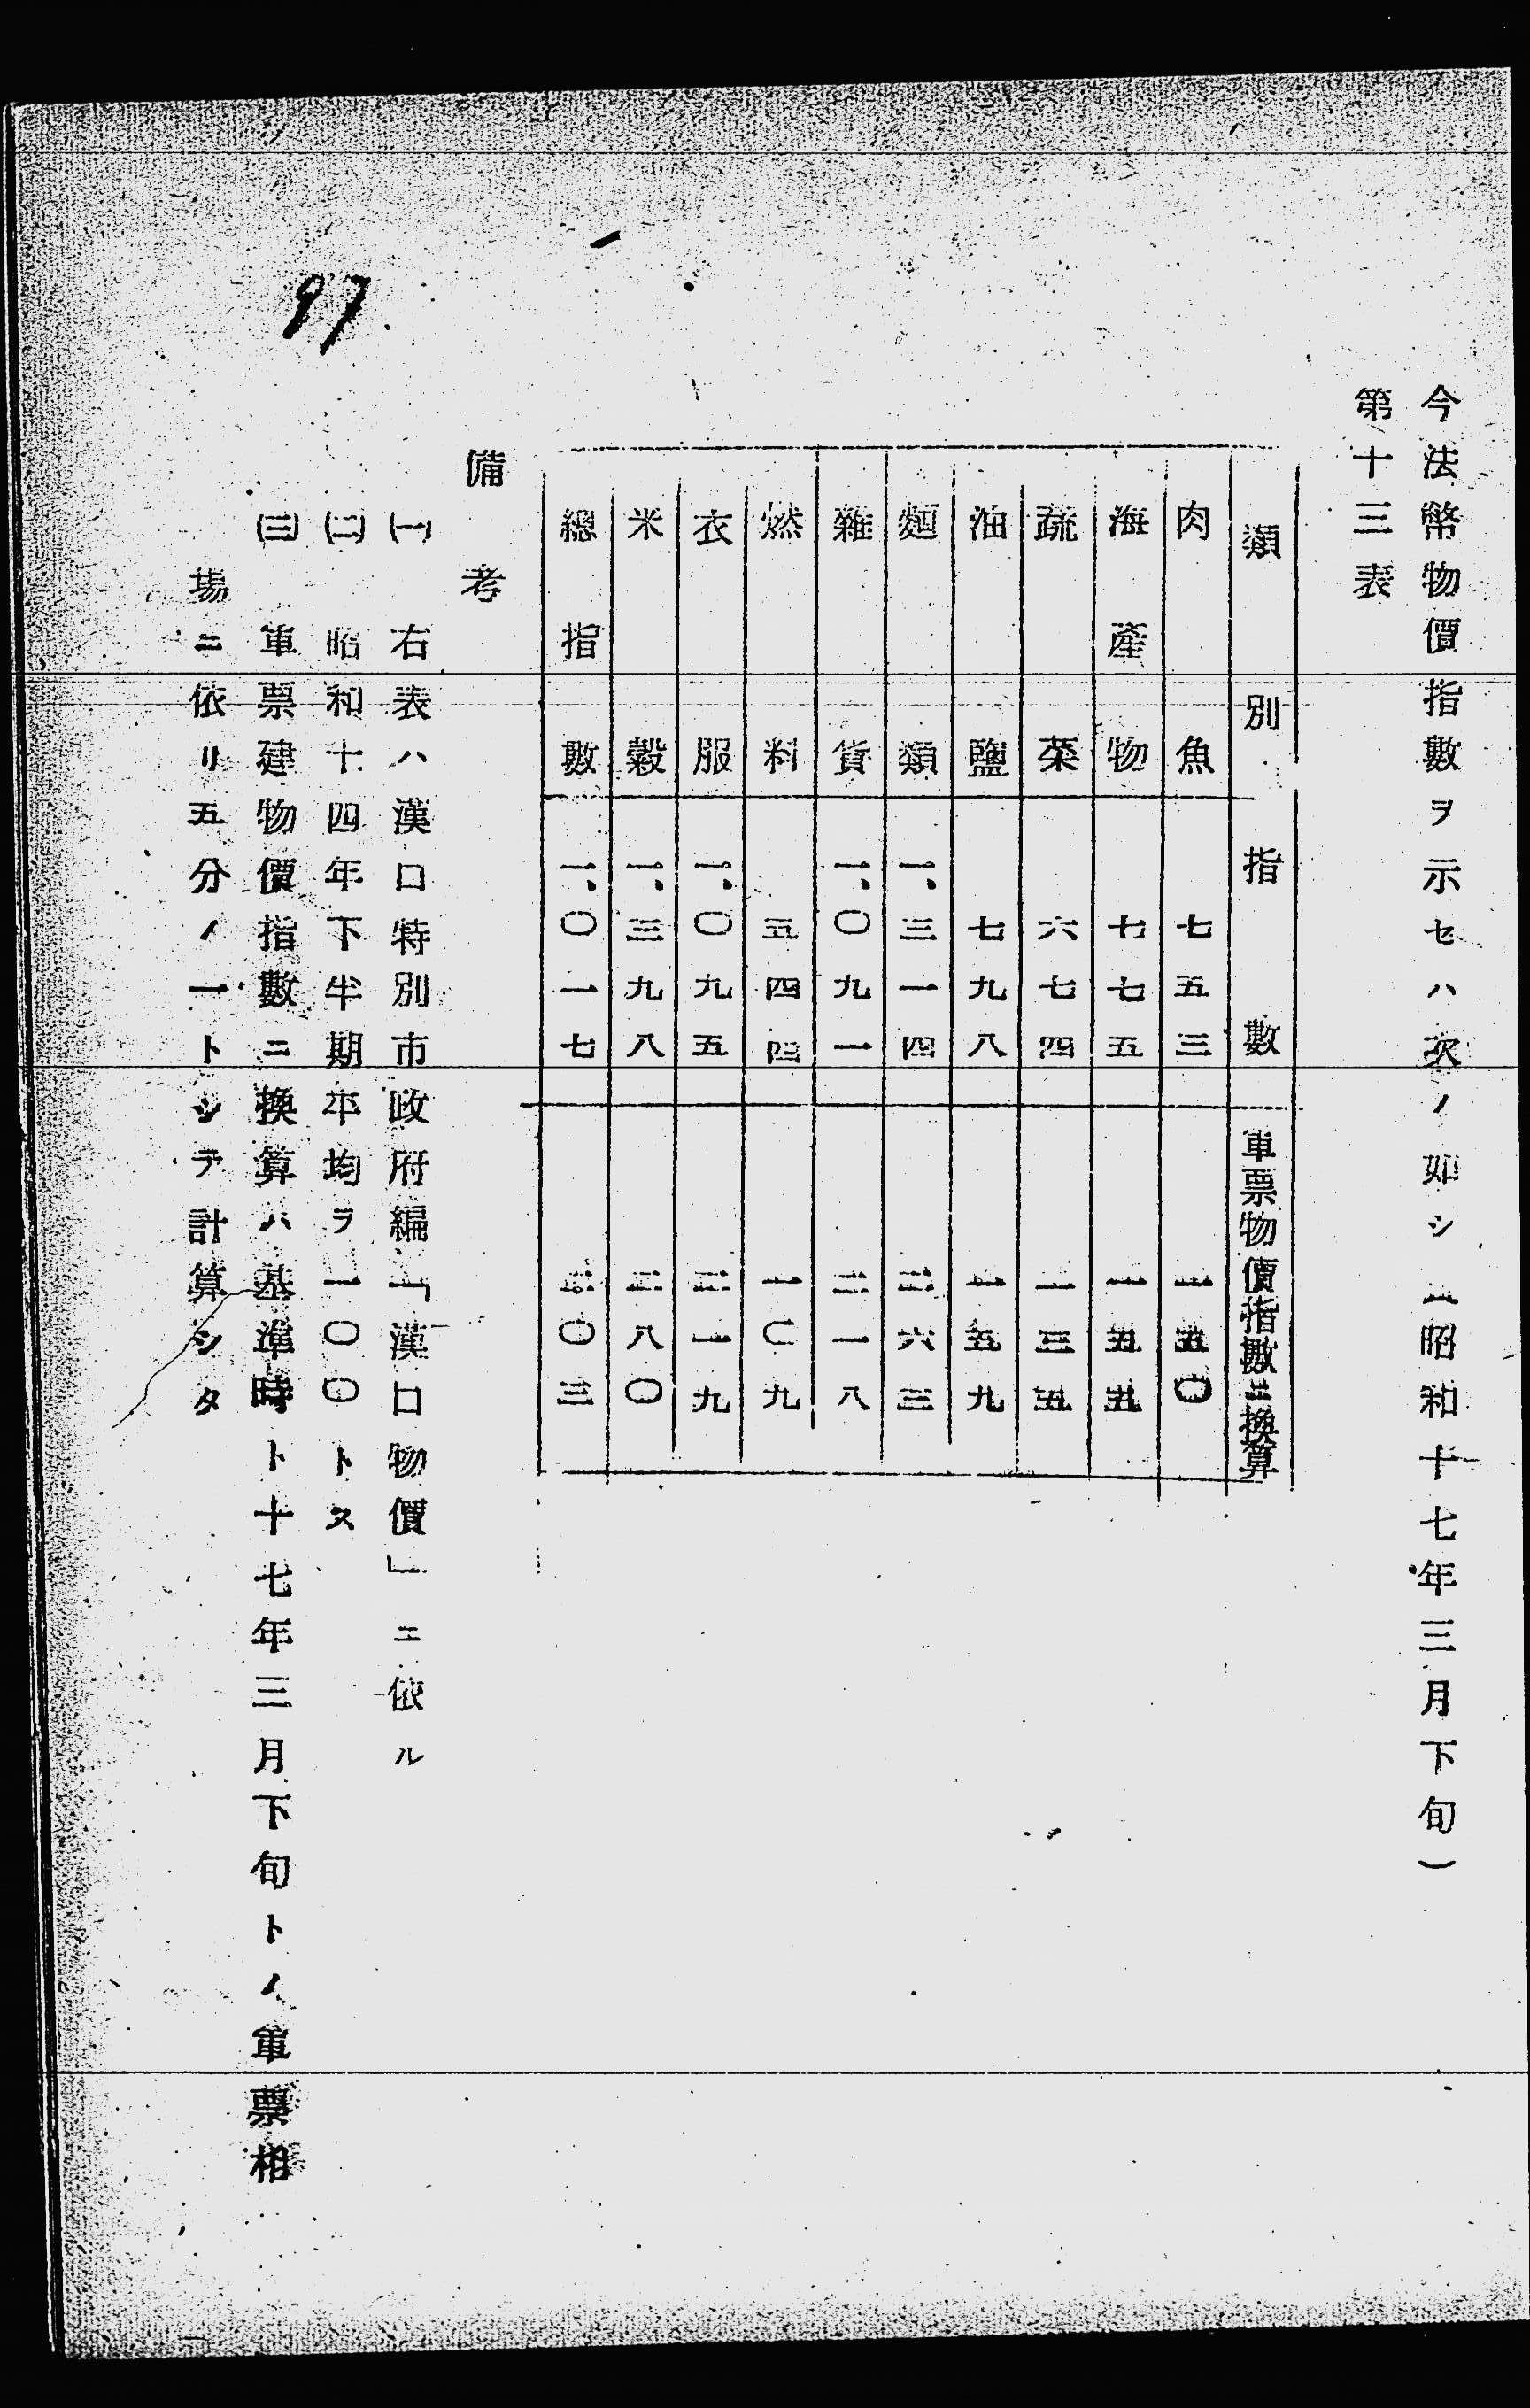 今法幣物價指數ヲ示セハ次ノ如シ(昭和十七年三月下旬)
第十三表
類別 指數 軍票物價指數ニ換算
肉魚 七五三 一五〇
海產物 七七五 一五五
蔬菜 六七四 一三五
油鹽 七九八 一五九
麵類 一、三一四 二六三
雜貨 一、〇九一 二一八
燃料 五四四 一〇九
衣服 一、〇九五 二一九
米穀 一、三九八 二八〇
總指數 一、〇一七 二〇三
備考
(一) 右表ハ漢口特別市政府編「漢口物價」ニ依ル
(二) 昭和十四年下半期平均ヲ一〇〇トス
(三) 軍票建物價指數ニ換算ハ基準時ト十七年三月下旬トノ軍票相
場ニ依リ五分ノ一トシテ計算シタ
97.